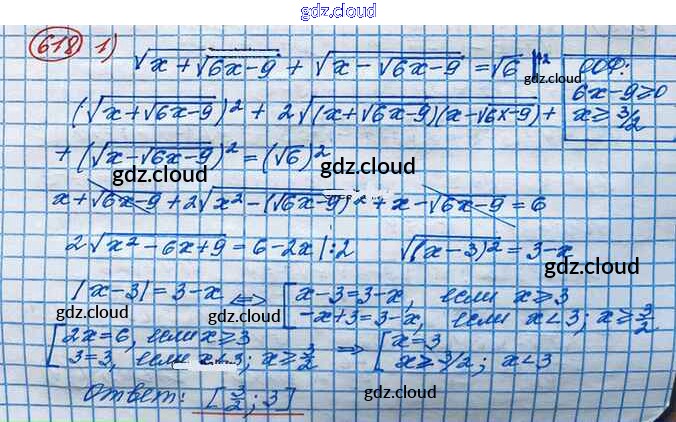 gdz.cloud
gdz.cloud
618 1) √(x+√(6x-9)) + √(x-√(6x-9)) = √6 |^2
ООФ:
6x-9≥0
x≥3/2
gdz.cloud
(√(x+√(6x-9)))² + 2√((x+√(6x-9))(x-√(6x-9))) +
+ (√(x-√(6x-9)))² = (√6)²
gdz.cloud
gdz.cloud
x+√(6x-9) + 2√(x²-(√(6x-9))²) + x-√(6x-9) = 6
2√(x²-6x+9) = 6-2x |:2 √((x-3)²) = 3-x
gdz.cloud
|x-3| = 3-x ⇔ [ x-3=3-x, если x≥3
-x+3=3-x, если x<3; x≥3/2
gdz.cloud
gdz.cloud
[ 2x=6, если x≥3
3=3, если x<3; x≥3/2 ⇒ [ x=3
x≥3/2; x<3
Ответ: [3/2; 3]
gdz.cloud
gdz.cloud